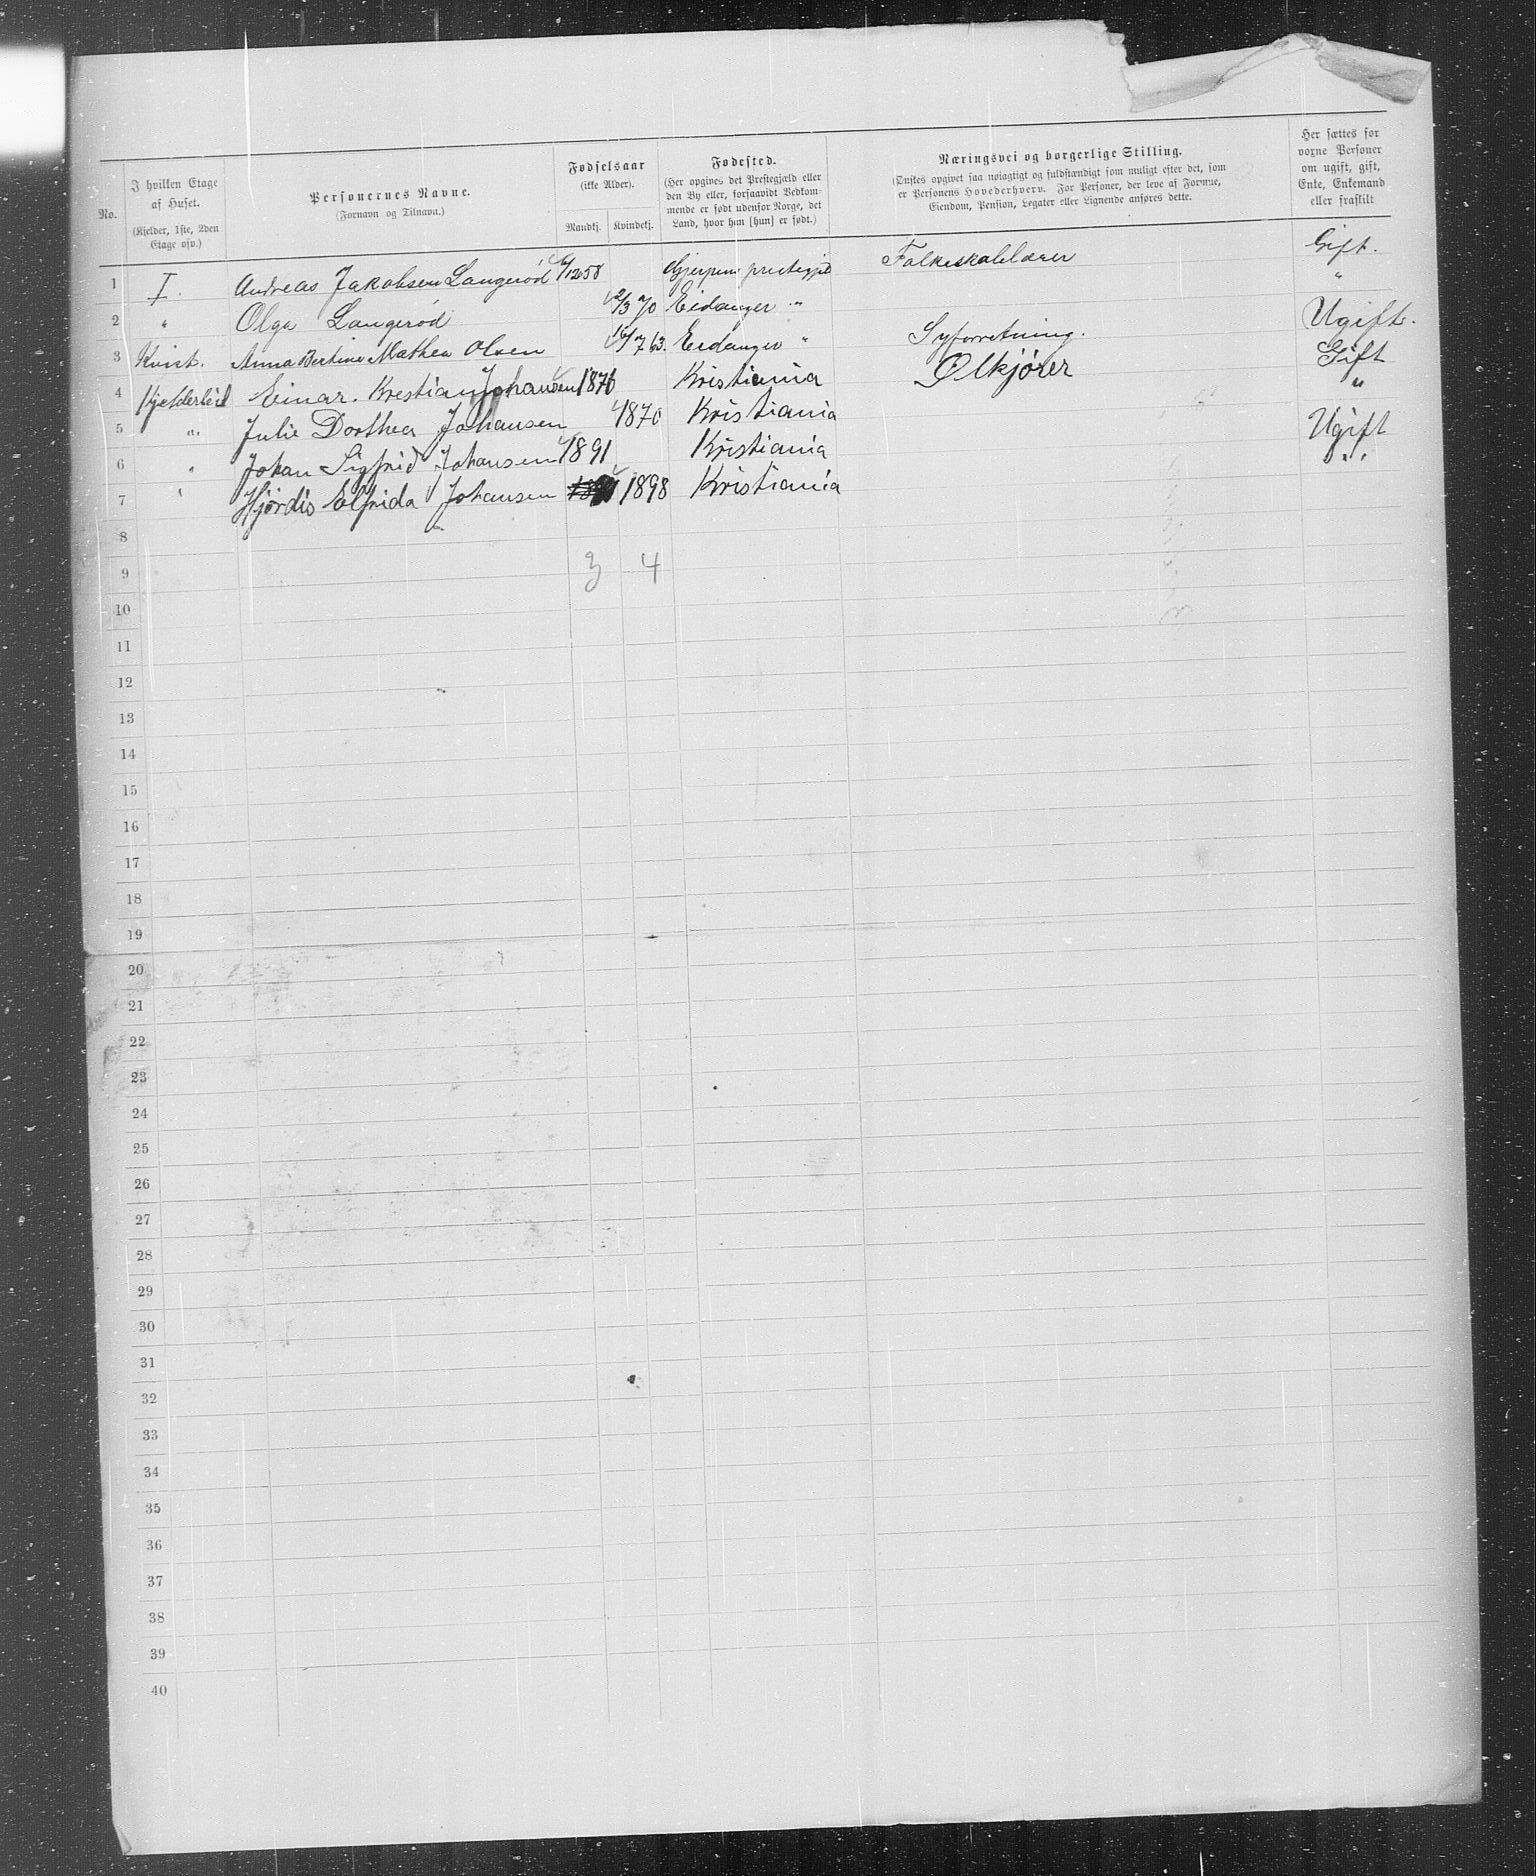 No. | I hvilken Etage af Huset. (Kjelder, 1ste, 2den Etage osv.) | Personernes Navne. (Fornavn og Tilnavn.) | Fødselsaar (ikke Alder). Mandkj. | Kvindekj. | Fødested. (Her opgives det Prestegjæld eller den By eller, forsaavidt Vedkommende er født udenfor Norge, det Land, hvor han [hun] er født.) | Næringsvei og borgerlige Stilling. (Ønskes opgivet saa nøiagtigt og fuldstændigt som muligt efter det, som er Personens Hovederhverv. For Personer, der leve af Formue, Eiendom, Pension, Legater eller Lignende anføres dette. | Her sættes for voxne Personer om ugift, gift, Enke, Enkemand eller fraskilt
1 | I. | Andreas Jakobsen Langerød | /12 58 | | Gjerpen prestegjæld | Folkeskolelærer | Gift.
2 | " | Olga Langerød | | 2/3 70 | Eidanger " | | "
3 | Kvist. | Anna Bertine Mathea Olsen | | 16/7 63. | Eidanger " | Syforretning. | Ugift.
4 | | Einar. Krestian Johansen | 1876 | | Kristiania | Ølkjører | Gift
5 | " | Julie Dorthea Johansen | | 1870 | Kristiania | | "
6 | " | Johan Sigfrid Johansen | 1891 | | Kristiania | | Ugift
7 | " | Hjørdis Elfrida Johansen | | 1898 | Kristiania | | "
8
9 | | | 3 | 4
10
11
12
13
14
15
16
17
18
19
20
21
22
23
24
25
26
27
28
29
30
31
32
33
34
35
36
37
38
39
40